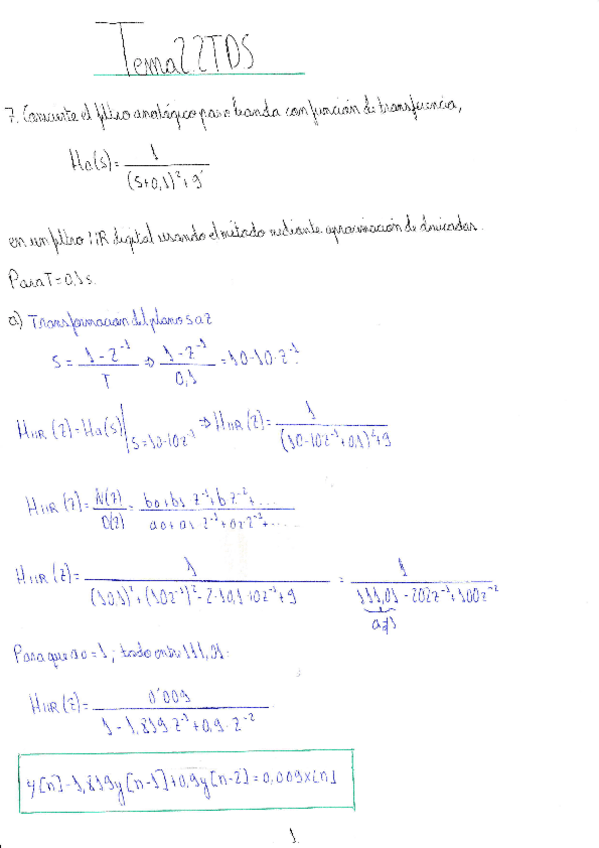 Tema 2.2 TDS
7. Convierte el filtro analógico paso banda con función de transferencia,
Ha(s) = 1 / ((s+0,1)² + 9)
en un filtro IIR digital usando el método mediante aproximación de derivadas.
Para T=0,1s.
a) Transformación del plano s a z
S = (1 - z⁻¹) / T ⇒ (1 - z⁻¹) / 0,1 = 10-10·z⁻¹
HIIR(z) = Ha(s)|s=10-10z⁻¹ ⇒ HIIR(z) = 1 / ((10-10z⁻¹+0,1)²+9)
HIIR(z) = N(z)/D(z) = (b0+b1 z⁻¹+b z⁻²+...) / (a0+a1 z⁻¹+a2 z⁻²+.....)
HIIR(z) = 1 / ((10,1)²+(10z⁻¹)²-2·10,1·10z⁻¹+9) = 1 / (111,01-202z⁻¹+100z⁻²)
a≠1
Para que a0=1; todo entre 111,01.
HIIR(z) = 0'009 / (1-1,819z⁻¹+0,9·z⁻²)
y[n]-1,819y[n-1]+0,9y[n-2]=0,009x[n]
1